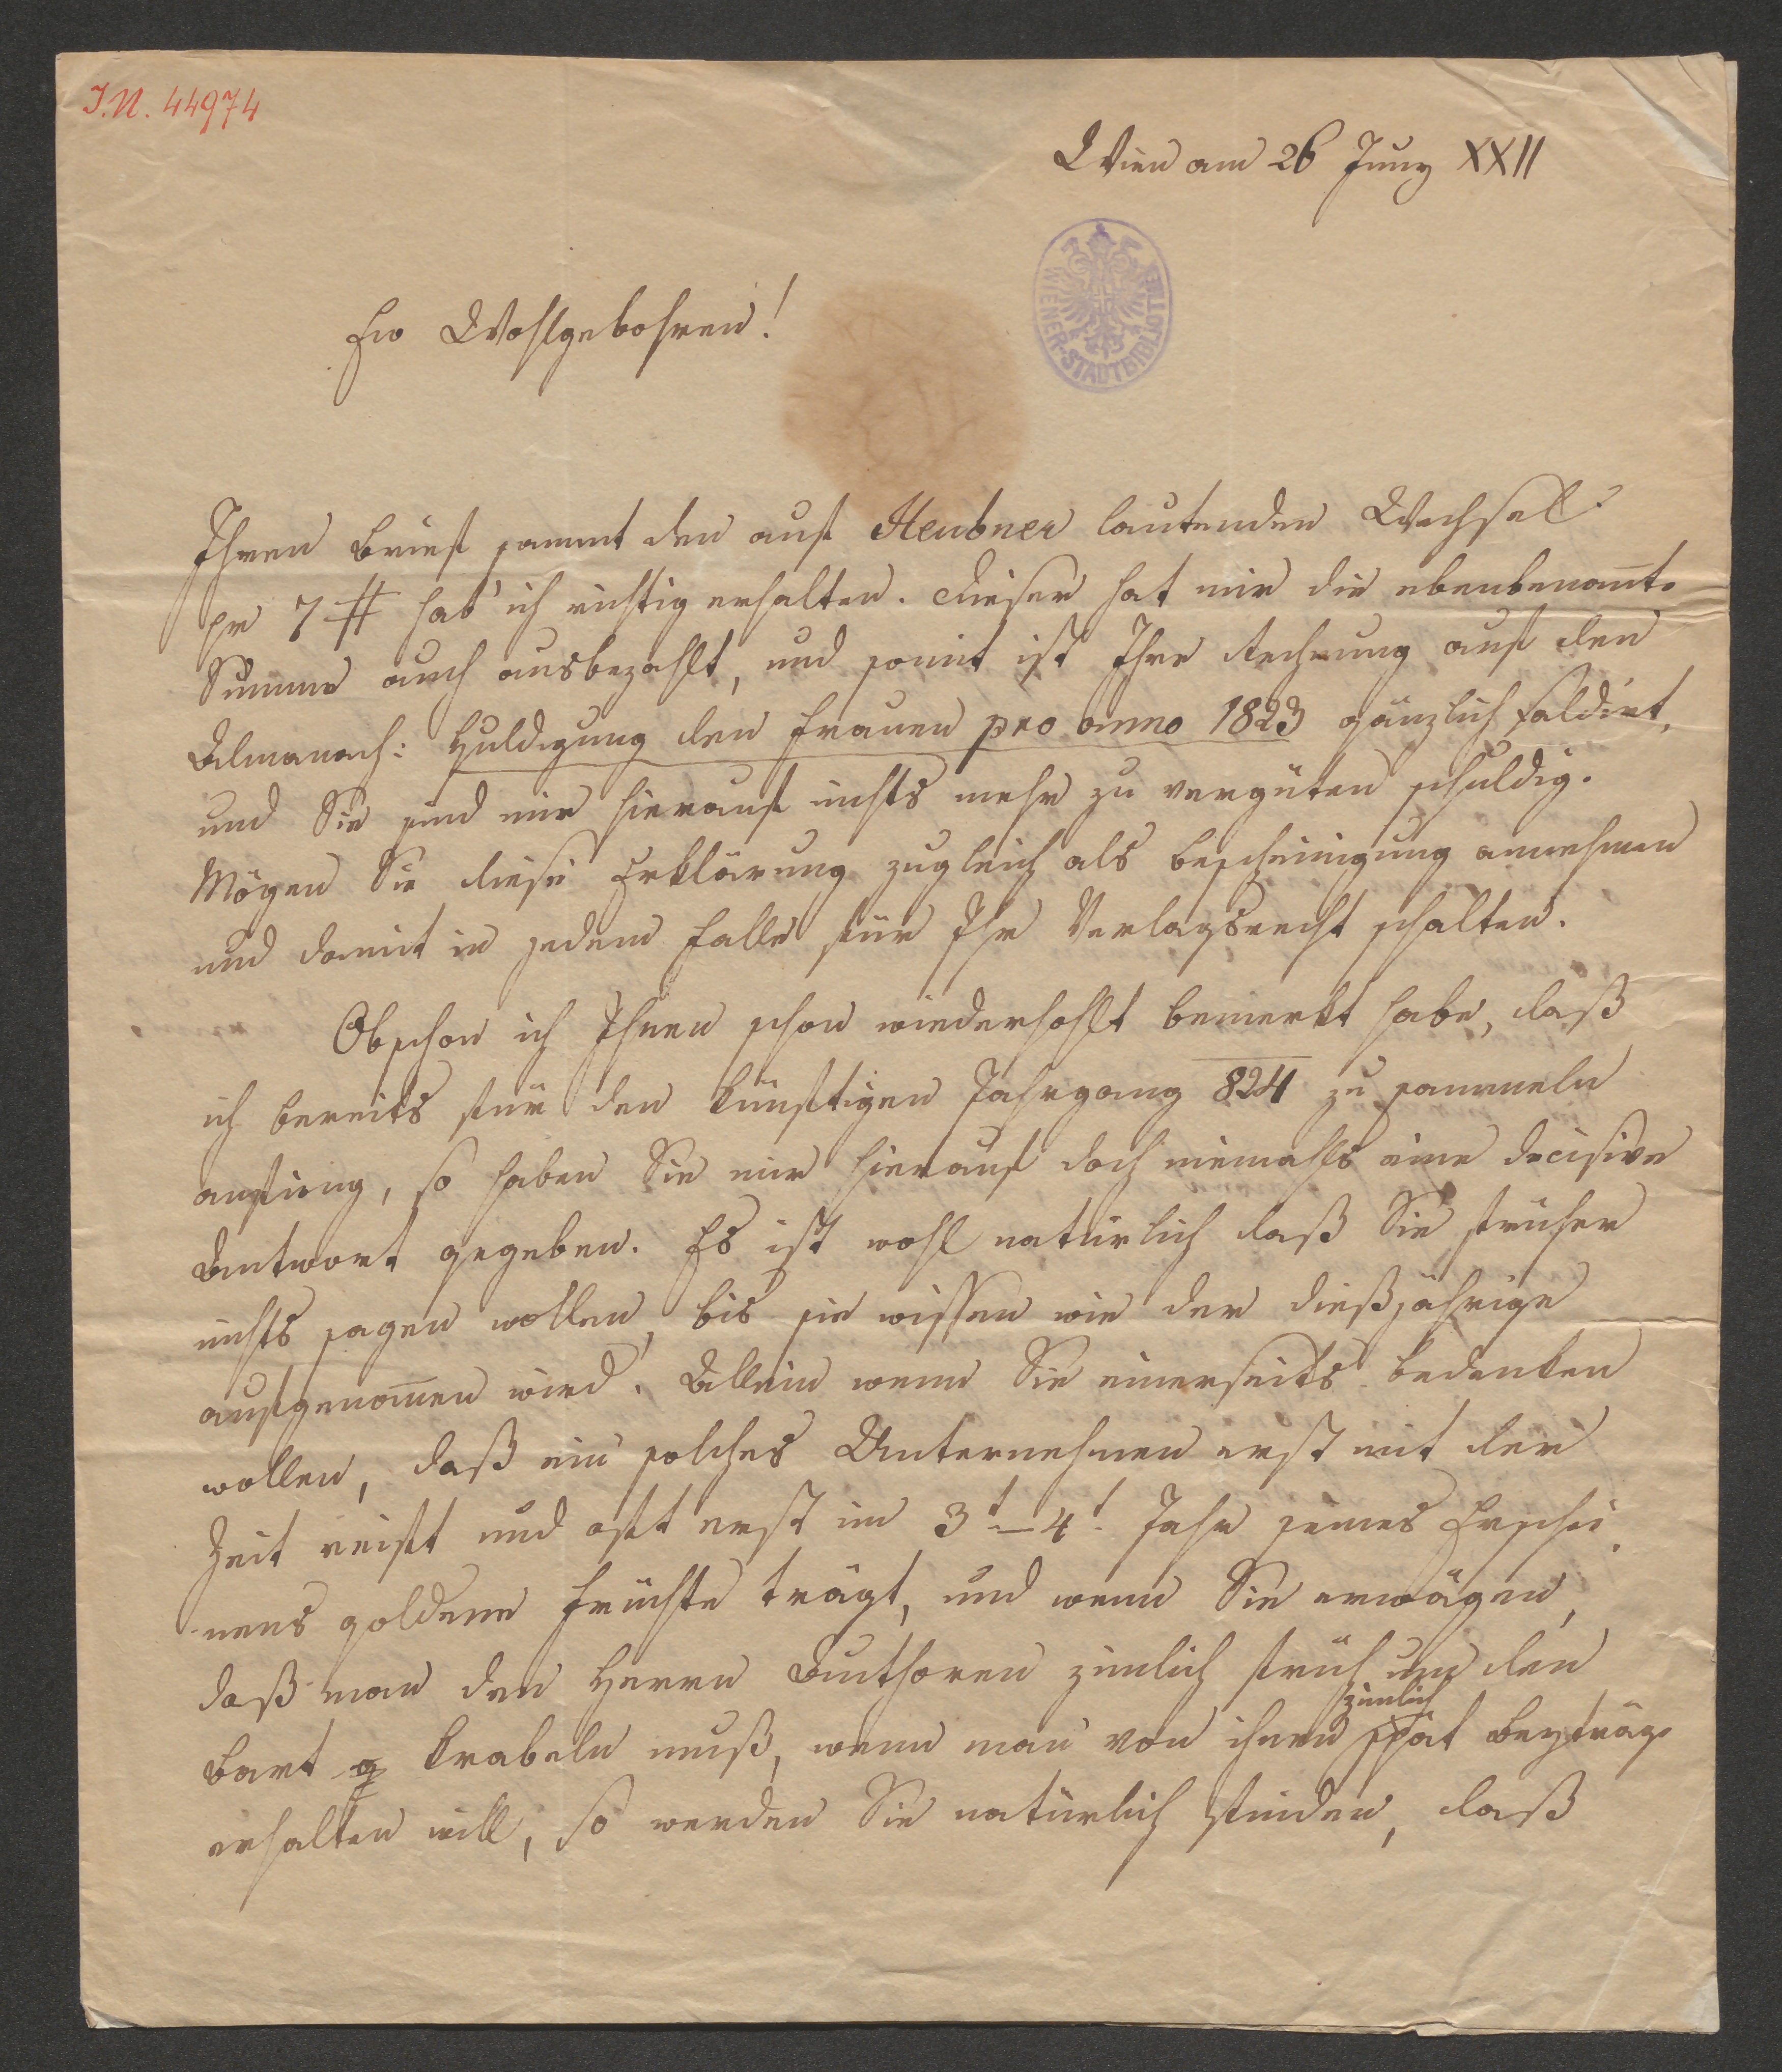 I.N. 44974
Wien am 26 Juny XXII
WIENER·STADTBIBLIOTHEK
Ew Wohlgebohren!
Ihren Brief sammt den auf Heubner lautenden Wechsel
pr 7 # hab' ich richtig erhalten. Dieser hat mir die ebenbenan̄te
Summe auch ausbezahlt, und somit ist Ihre Rechnung auf den
Almanach: Huldigung den Frauen pro anno 1823 gänzlich saldirt,
und Sie sind mir hierauf nichts mehr zu vergüten schuldig.
Mögen Sie diese Erklärung zugleich als Bescheinigung annehmen
und damit in jedem Falle für Ihr Verlagsrecht schalten.
Obschon ich Ihnen schon wiederhohlt bemerkt habe, daß
ich bereits für den künftigen Jahrgang 824 zu sammeln
anfieng, so haben Sie mir hierauf doch niemahls eine decisive
Antwort gegeben. Es ist wohl natürlich daß Sie früher
nichts sagen wollen, bis sie wissen wie der dießjährige
aufgenom̄en wird. Allein wenn Sie einerseits bedenken
wollen, daß ein solches Unternehmen erst mit der
Zeit reift und oft erst im 3t–4t. Jahr seines Erschei
nens goldene Früchte trägt, und wenn Sie erwägen,
daß man den Herrn Authoren zimlich früh um den
zimlich
Bart krabeln muß, wenn man von ihnen spät Beyträge
erhalten will, so werden Sie natürlich finden, daß